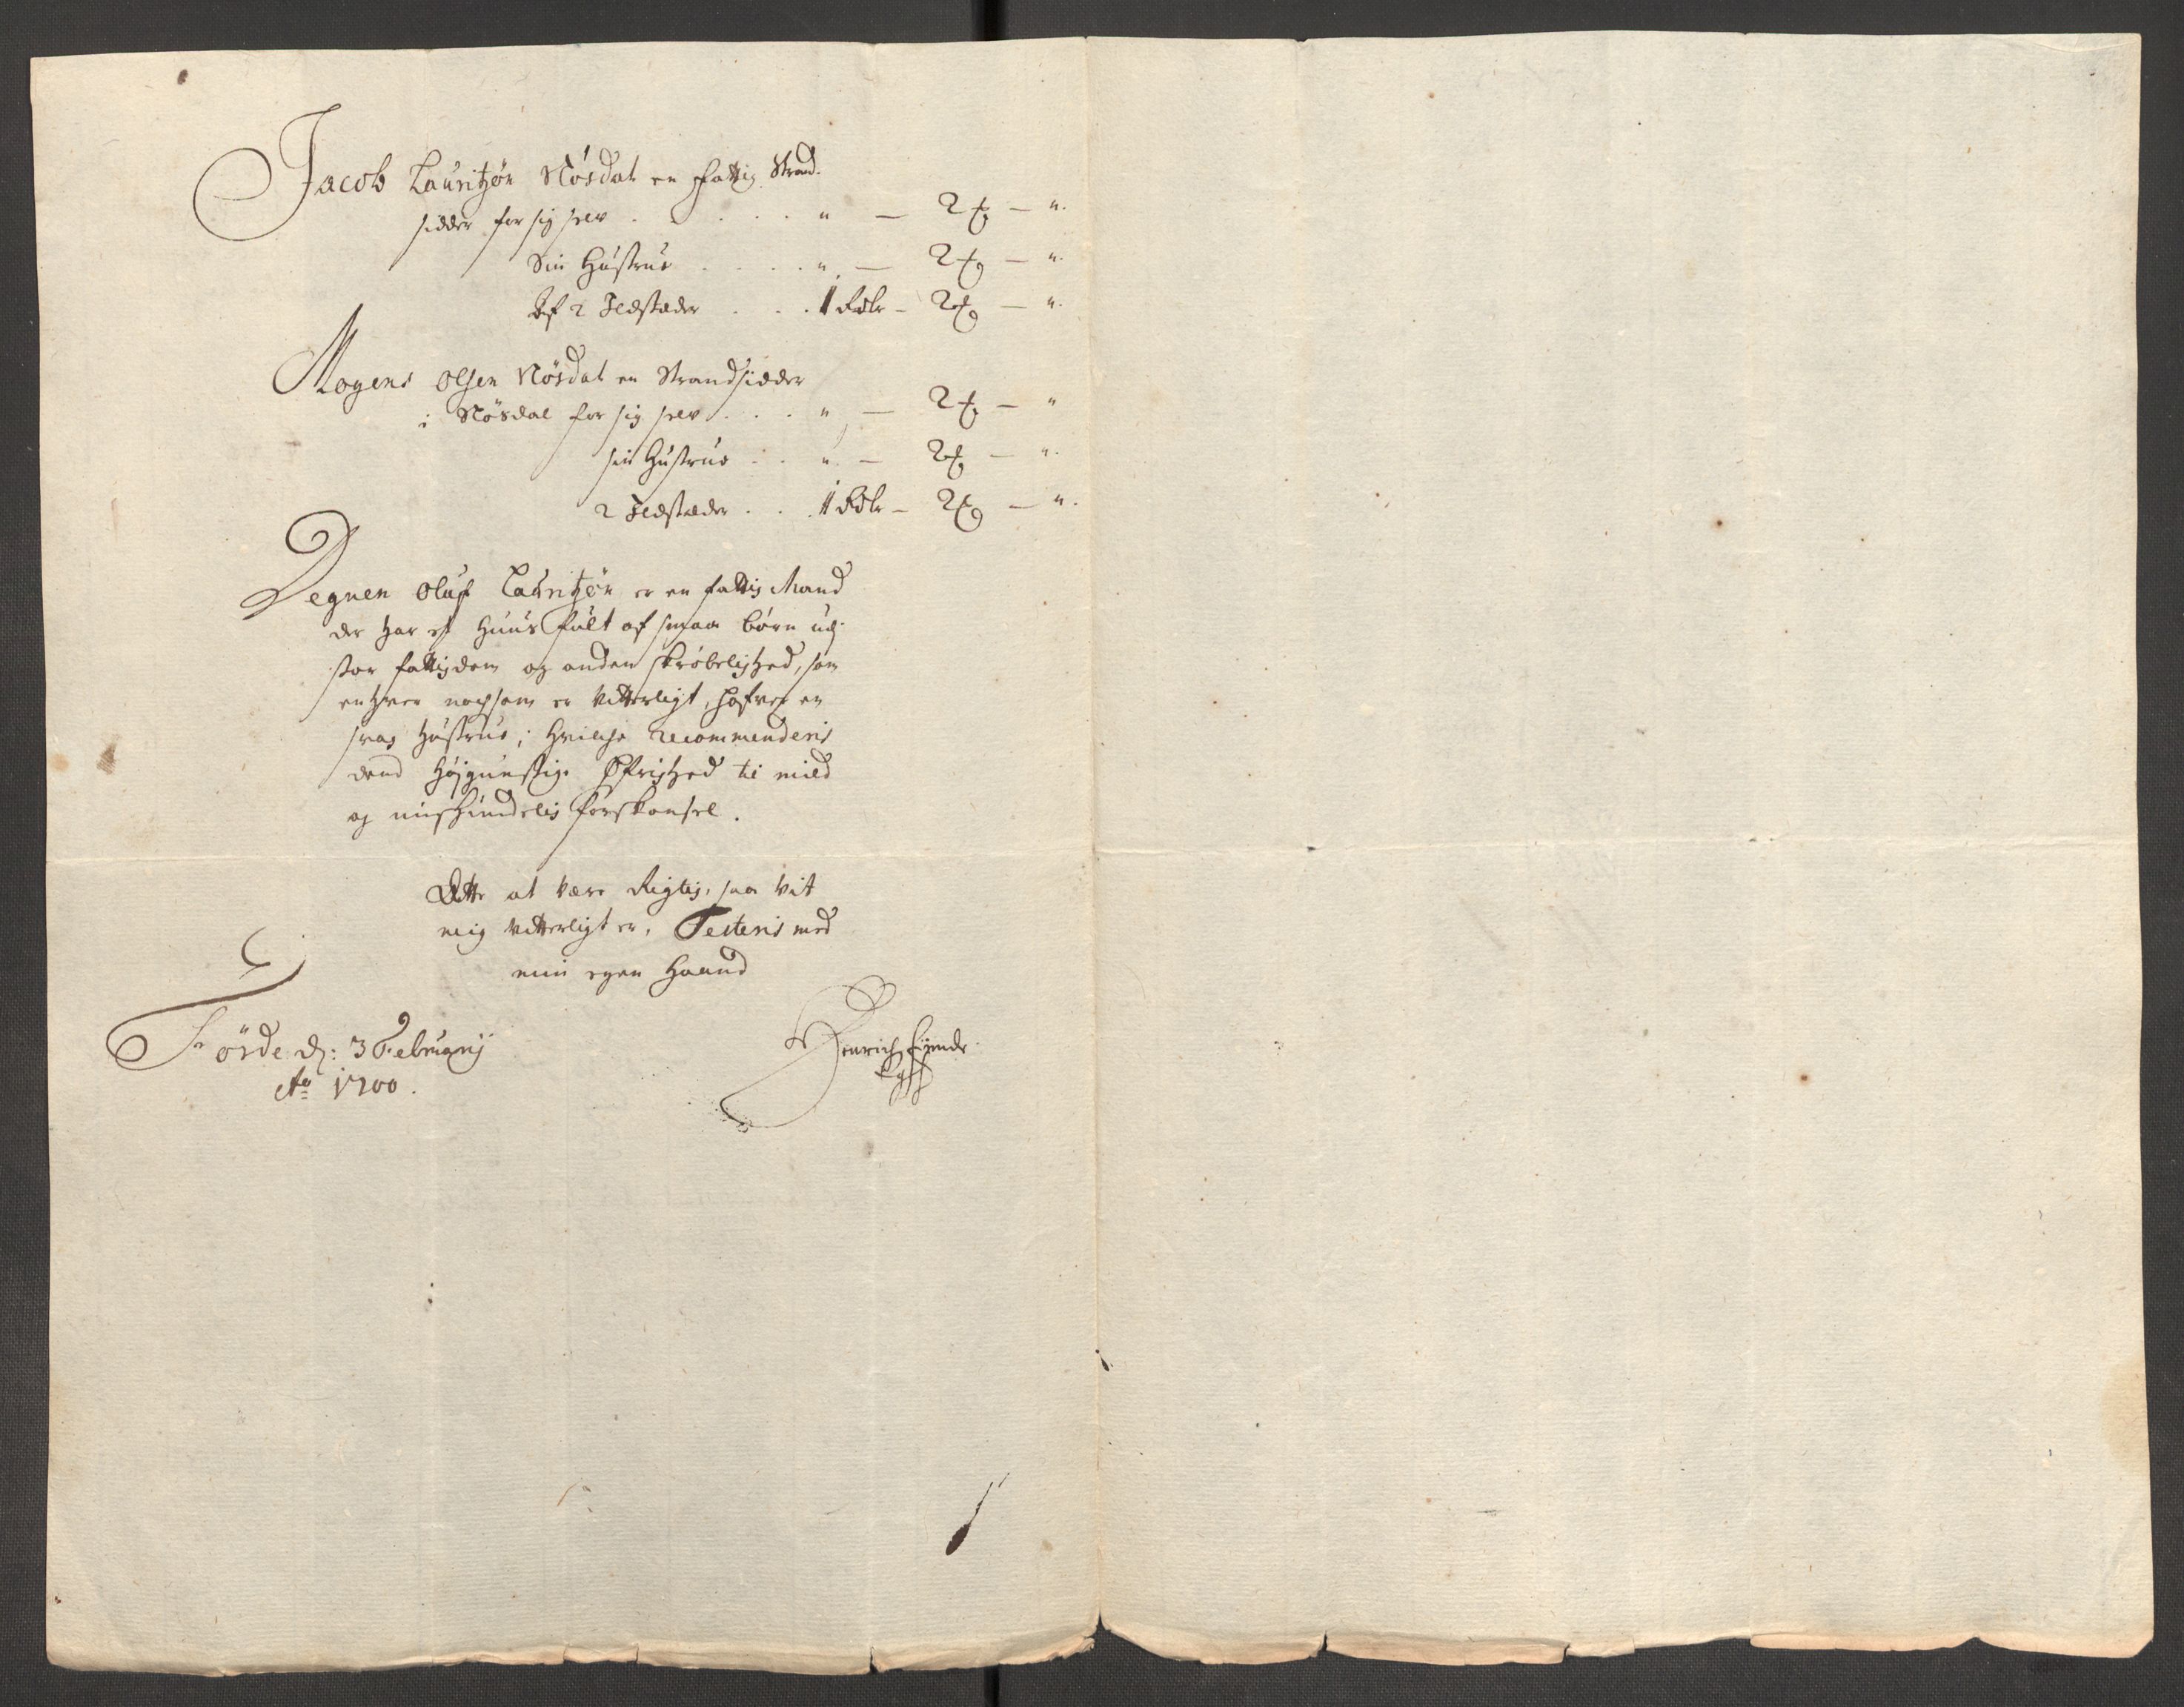 Jacob Lauritzøn Nøsdal en Fattig Strand-
sidder for sig selv . . . . . " — 2 ß — ".
Sin Hustrue . . . . " — 2 ß — ".
Af 2 Ildstæder . . . 1 Rdlr — 2 ß — ".
Mogens Olsen Nøsdal en Strandsidder
i Nøsdal for sig selv . . . " — 2 ß — "
sin Hustrue . . " — 2 ß — ".
2 Ildstæder . . . 1 Rdlr — 2 ß — ".
Degnen Oluf Lauritzøn er en fattig Mand
der har et Huus fult af smaa børn udj
stor fattigdom og anden skrøbelighed, som
enhver nochsom er vitterligt, hafver en
svag Hustrue; hvilche recommenderis
dend Højgunstige Øfrighed til mild
og medhSkaansel.
Dette at være Rigtig, saa vit
mig vitterligt er, Testeris med
min egen Haand
Førde d: 3 Februarij
Ao 1700.
Henrich